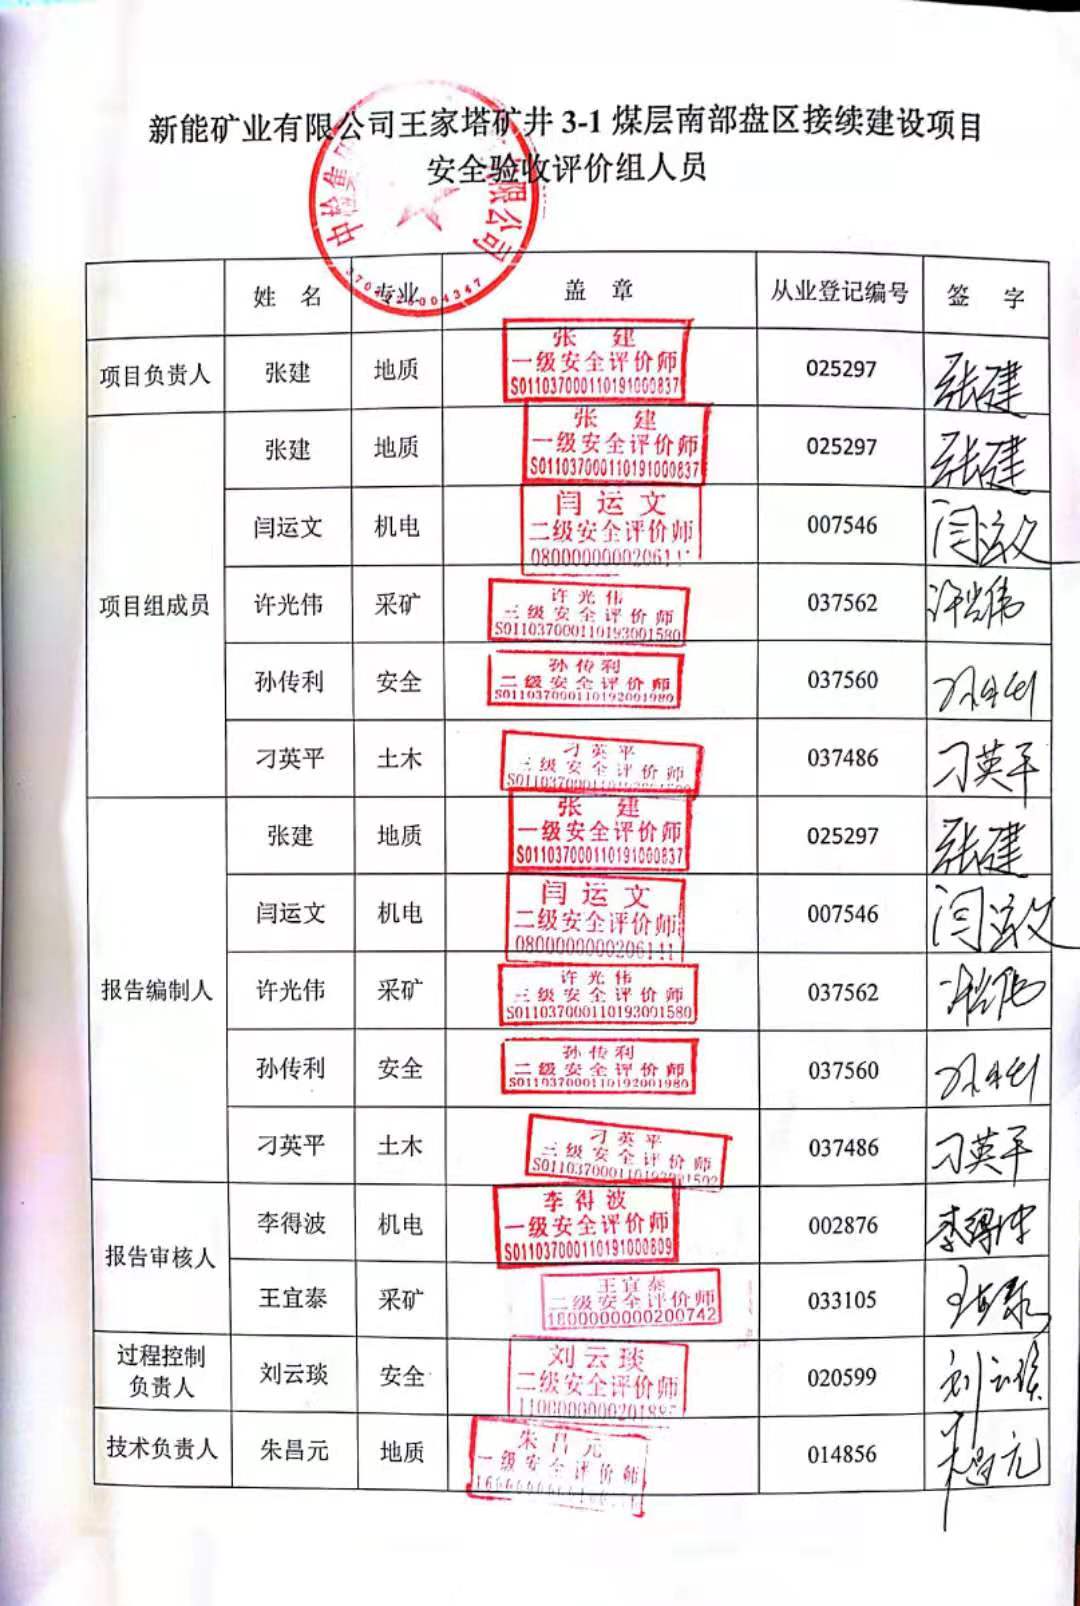 新能矿业有限公司王家塔矿井 3-1 煤层南部盘区接续建设项目
安全验收评价组人员
中检集 限公司
姓 名 专业 盖 章 从业登记编号 签 字
项目负责人 张建 地质 025297 张建
张 建
一级安全评价师
S011037000110191000837
项目组成员
张建 地质 025297 张建
张 建
一级安全评价师
S011037000110191000837
闫运文 机电 007546 闫运文
闫运文
二级安全评价师
许光伟 采矿 037562 许光伟
许光伟
三级安全评价师
S011037000110193001580
孙传利 安全 037560 孙传利
孙传利
二级安全评价师
S011037000110192001980
刁英平 土木 037486 刁英平
刁英平
三级安全评价师
报告编制人
张建 地质 025297 张建
张 建
一级安全评价师
S011037000110191000837
闫运文 机电 007546 闫运文
闫运文
二级安全评价师
许光伟 采矿 037562 许光伟
许光伟
三级安全评价师
S011037000110193001580
孙传利 安全 037560 孙传利
孙传利
二级安全评价师
S011037000110192001980
刁英平 土木 037486 刁英平
刁英平
三级安全评价师
报告审核人
李得波 机电 002876 李得波
李得波
一级安全评价师
S011037000110191000809
王宜泰 采矿 033105 王宜泰
王宜泰
二级安全评价师
1800000000200742
过程控制
负责人
刘云琰 安全 020599 刘云琰
刘云琰
二级安全评价师
技术负责人 朱昌元 地质 014856 朱昌元
朱昌元
一级安全评价师